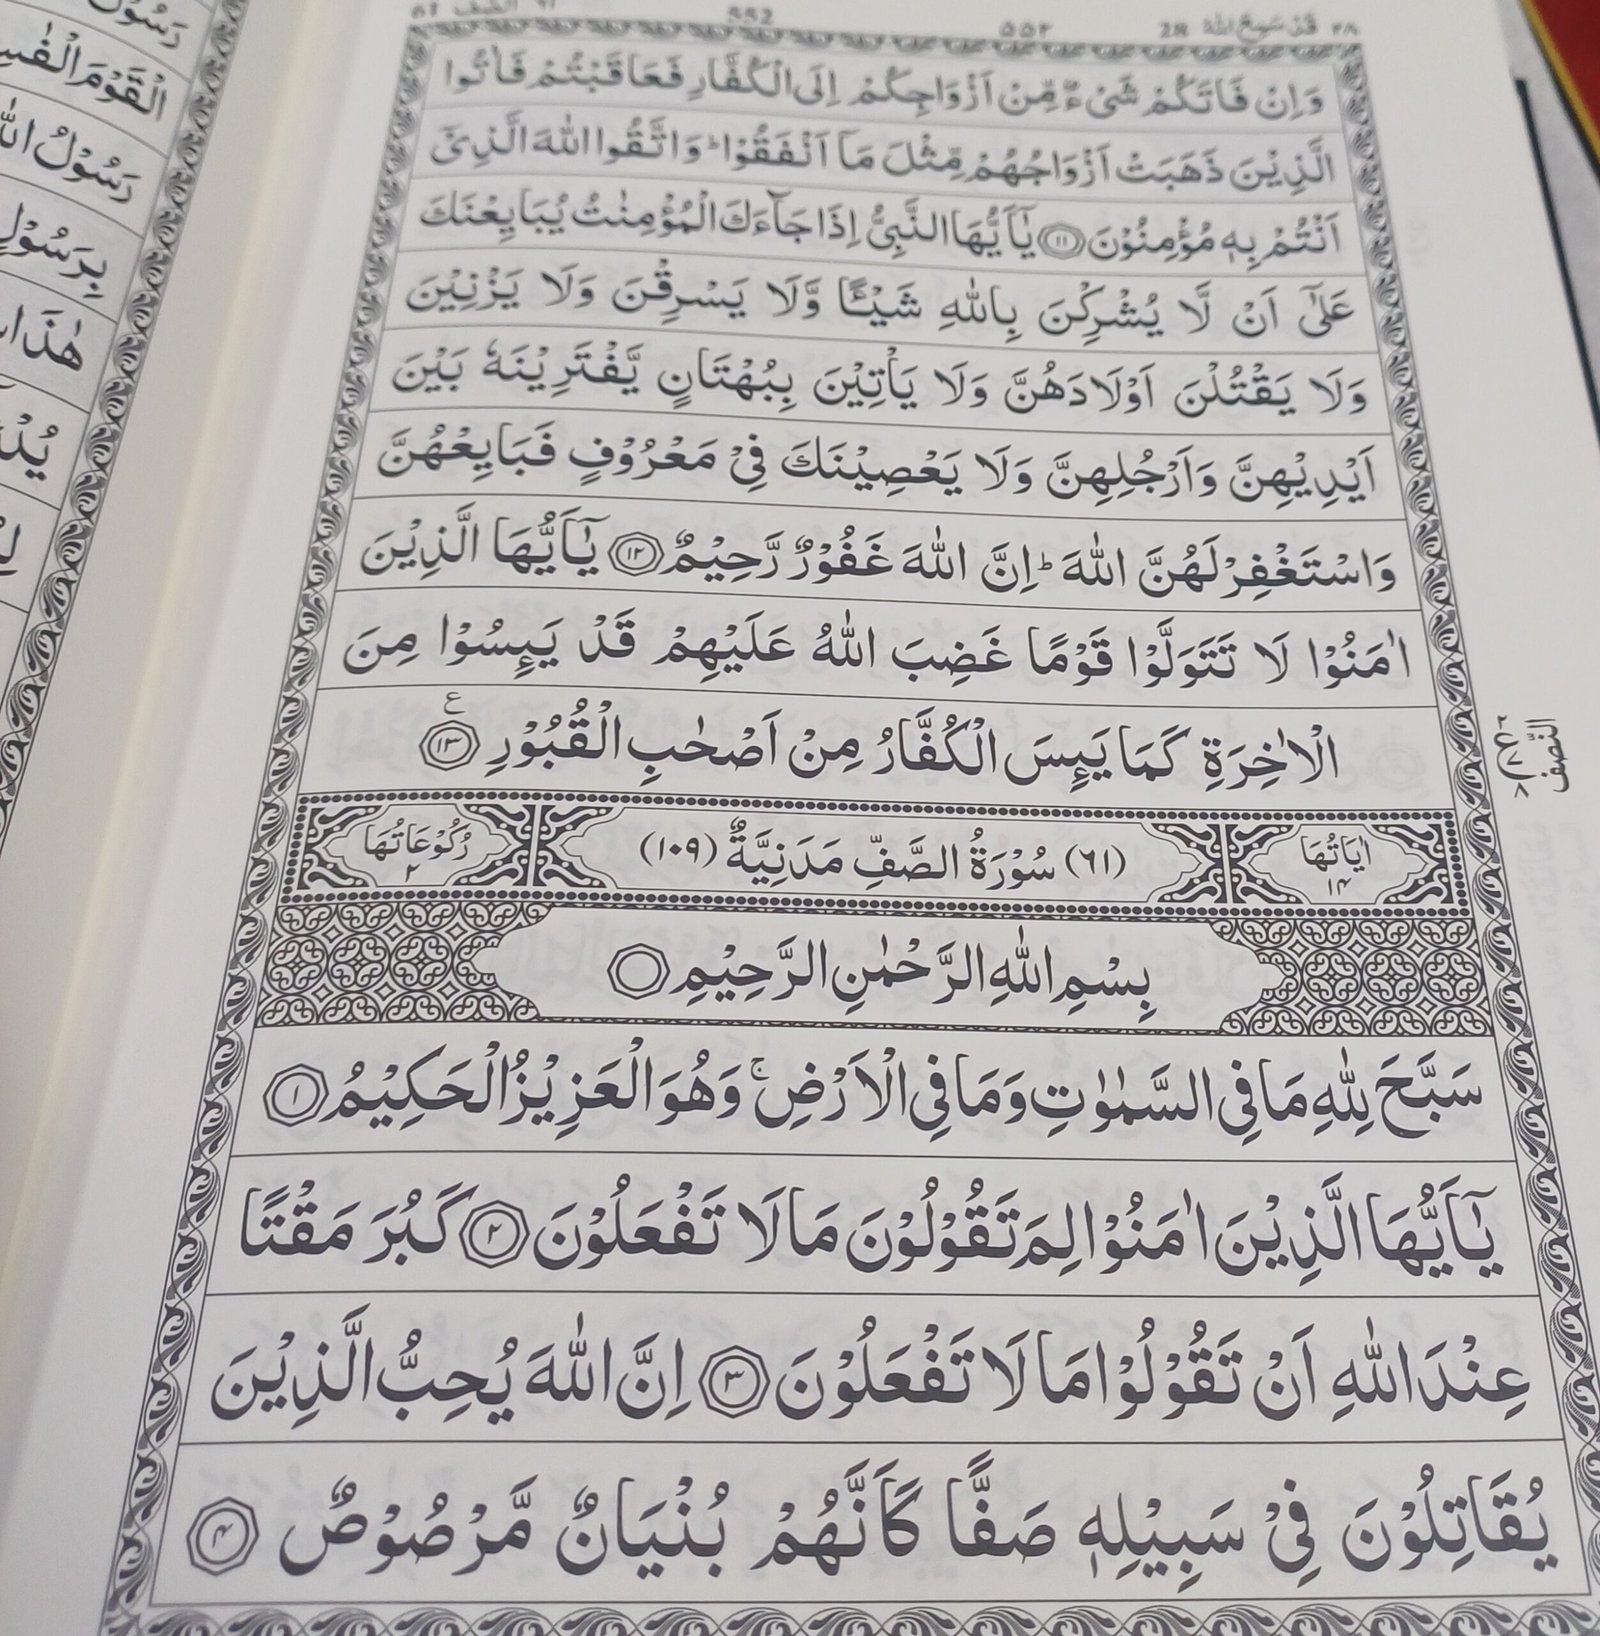 ۲۸ قَدْ سَمِعَ اللّٰهُ 28
۵۵۲
552
الصّف ٦١ 61
وَاِنْ فَاتَكُمْ شَىْءٌ مِّنْ اَزْوَاجِكُمْ اِلَى الْكُفَّارِ فَعَاقَبْتُمْ فَاٰتُوا
الَّذِيْنَ ذَهَبَتْ اَزْوَاجُهُمْ مِّثْلَ مَاۤ اَنْفَقُوْا ؕ وَاتَّقُوا اللّٰهَ الَّذِىْۤ
اَنْتُمْ بِهٖ مُؤْمِنُوْنَ ﴿۱۱﴾ يٰۤاَيُّهَا النَّبِىُّ اِذَا جَآءَكَ الْمُؤْمِنٰتُ يُبَايِعْنَكَ
عَلٰٓى اَنْ لَّا يُشْرِكْنَ بِاللّٰهِ شَيْـًٔا وَّلَا يَسْرِقْنَ وَلَا يَزْنِيْنَ
وَلَا يَقْتُلْنَ اَوْلَادَهُنَّ وَلَا يَاْتِيْنَ بِبُهْتَانٍ يَّفْتَرِيْنَهٗ بَيْنَ
اَيْدِيْهِنَّ وَاَرْجُلِهِنَّ وَلَا يَعْصِيْنَكَ فِىْ مَعْرُوْفٍ فَبَايِعْهُنَّ
وَاسْتَغْفِرْ لَهُنَّ اللّٰهَ ؕ اِنَّ اللّٰهَ غَفُوْرٌ رَّحِيْمٌ ﴿۱۲﴾ يٰۤاَيُّهَا الَّذِيْنَ
اٰمَنُوْا لَا تَتَوَلَّوْا قَوْمًا غَضِبَ اللّٰهُ عَلَيْهِمْ قَدْ يَىِٕسُوْا مِنَ
الْاٰخِرَةِ كَمَا يَىِٕسَ الْكُفَّارُ مِنْ اَصْحٰبِ الْقُبُوْرِ ﴿۱۳﴾ ع
النّصف
۲ ع ۷ ۸
اٰيَاتُهَا ۱۴ (٦١) سُوْرَةُ الصَّفِّ مَدَنِيَّةٌ (۱۰۹) رُكُوْعَاتُهَا ۲
بِسْمِ اللّٰهِ الرَّحْمٰنِ الرَّحِيْمِ
سَبَّحَ لِلّٰهِ مَا فِى السَّمٰوٰتِ وَمَا فِى الْاَرْضِ ۚ وَهُوَ الْعَزِيْزُ الْحَكِيْمُ ﴿۱﴾
يٰۤاَيُّهَا الَّذِيْنَ اٰمَنُوْا لِمَ تَقُوْلُوْنَ مَا لَا تَفْعَلُوْنَ ﴿۲﴾ كَبُرَ مَقْتًا
عِنْدَ اللّٰهِ اَنْ تَقُوْلُوْا مَا لَا تَفْعَلُوْنَ ﴿۳﴾ اِنَّ اللّٰهَ يُحِبُّ الَّذِيْنَ
يُقَاتِلُوْنَ فِىْ سَبِيْلِهٖ صَفًّا كَاَنَّهُمْ بُنْيَانٌ مَّرْصُوْصٌ ﴿۴﴾
رَسُوْلُ
الْقَوْمَ
رَسُوْلُ
هٰذَا